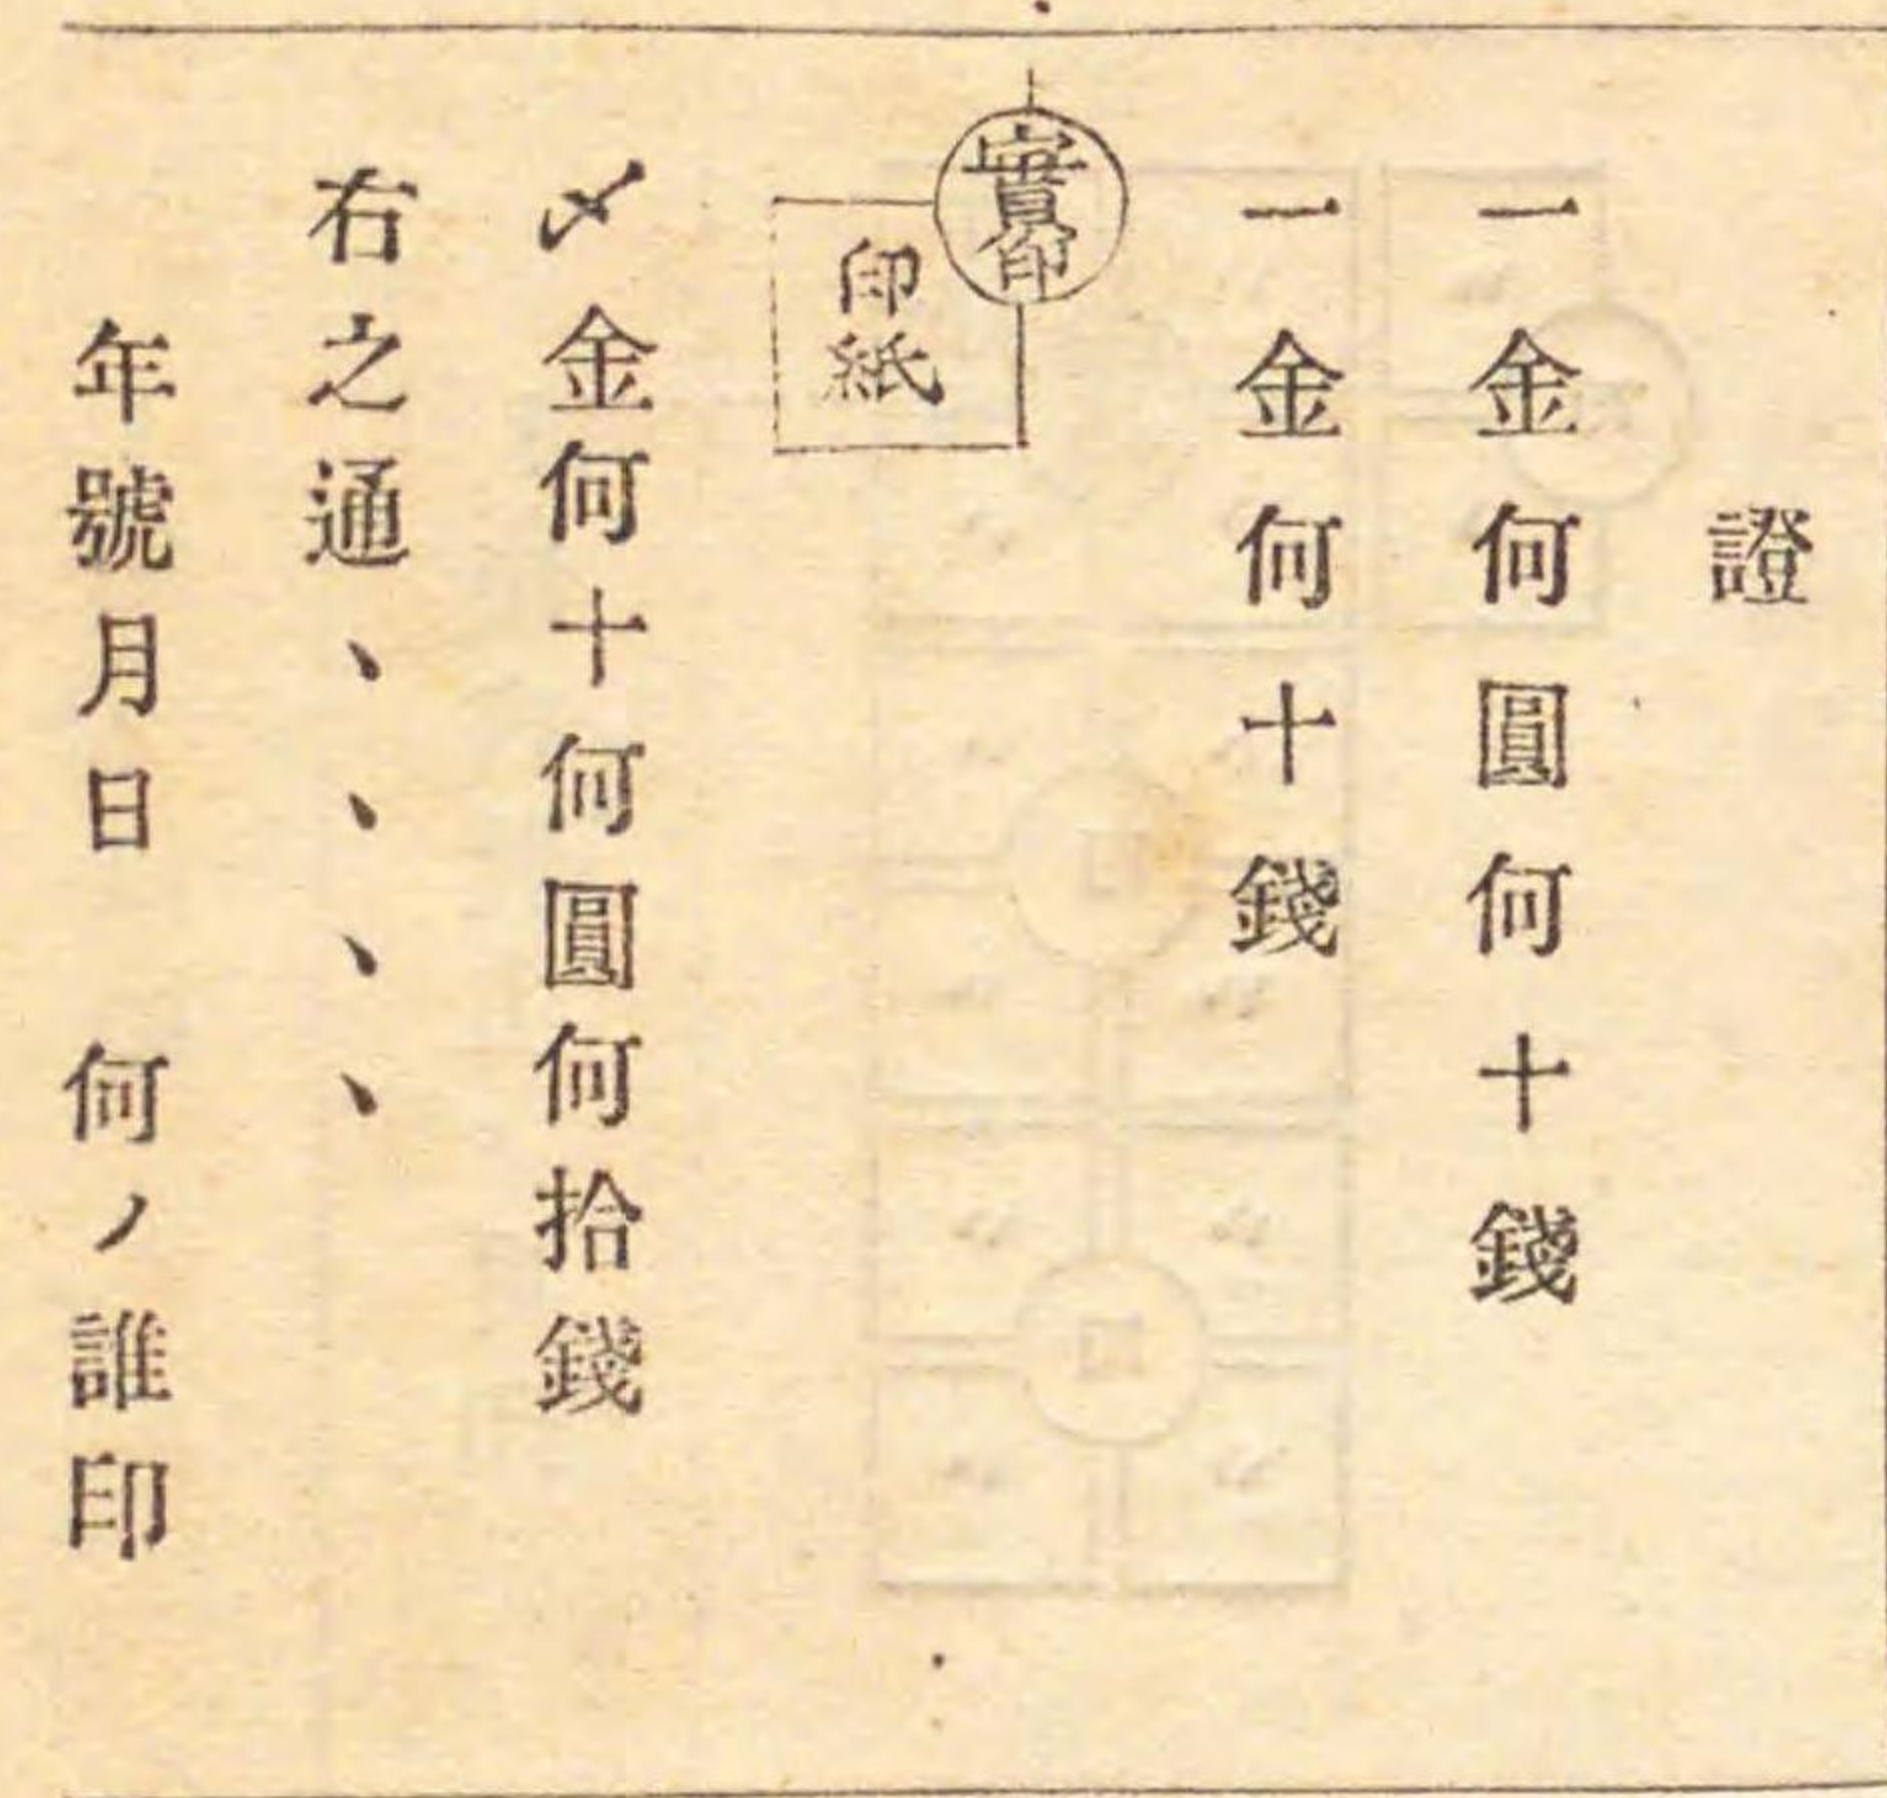 證
一金何圓何十錢
一金何十錢
實印
印紙
〆金何十何圓何拾錢
右之通、、、、
年號月日　何ノ誰印